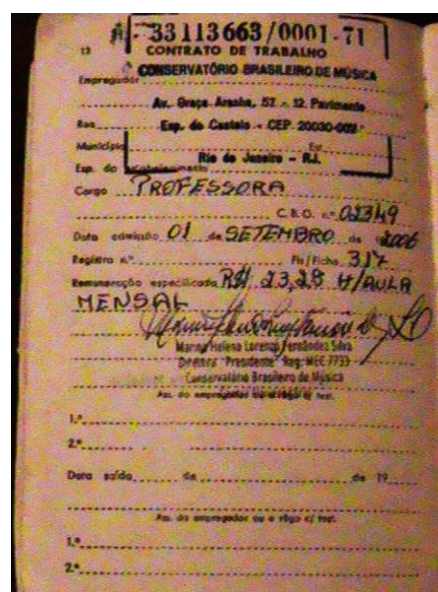 33113663/0001-71
13 CONTRATO DE TRABALHO
Empregador CONSERVATÓRIO BRASILEIRO DE MÚSICA
Av. Graça Aranha, 57 - 12. Pavimento
Rua Esp. do Castelo - CEP 20030-002
Município Est.
Rio de Janeiro - RJ.
Esp. do estabelecimento
Cargo PROFESSORA
C.B.O. n.º 02349
Data admissão 01 de SETEMBRO de 2006
Registro n.º Fls/Ficha 317
Remuneração especificada R$ 23,28 H/AULA
MENSAL
Marina Helena Lorenzo Fernandez Silva
Diretora "Presidente" Reg: MEC 7733
Conservatório Brasileiro de Música
Ass. do empregador ou a rôgo c/ test.
1.º
2.º
Data saída de de 19
Ass. do empregador ou a rôgo c/ test.
1.º
2.º